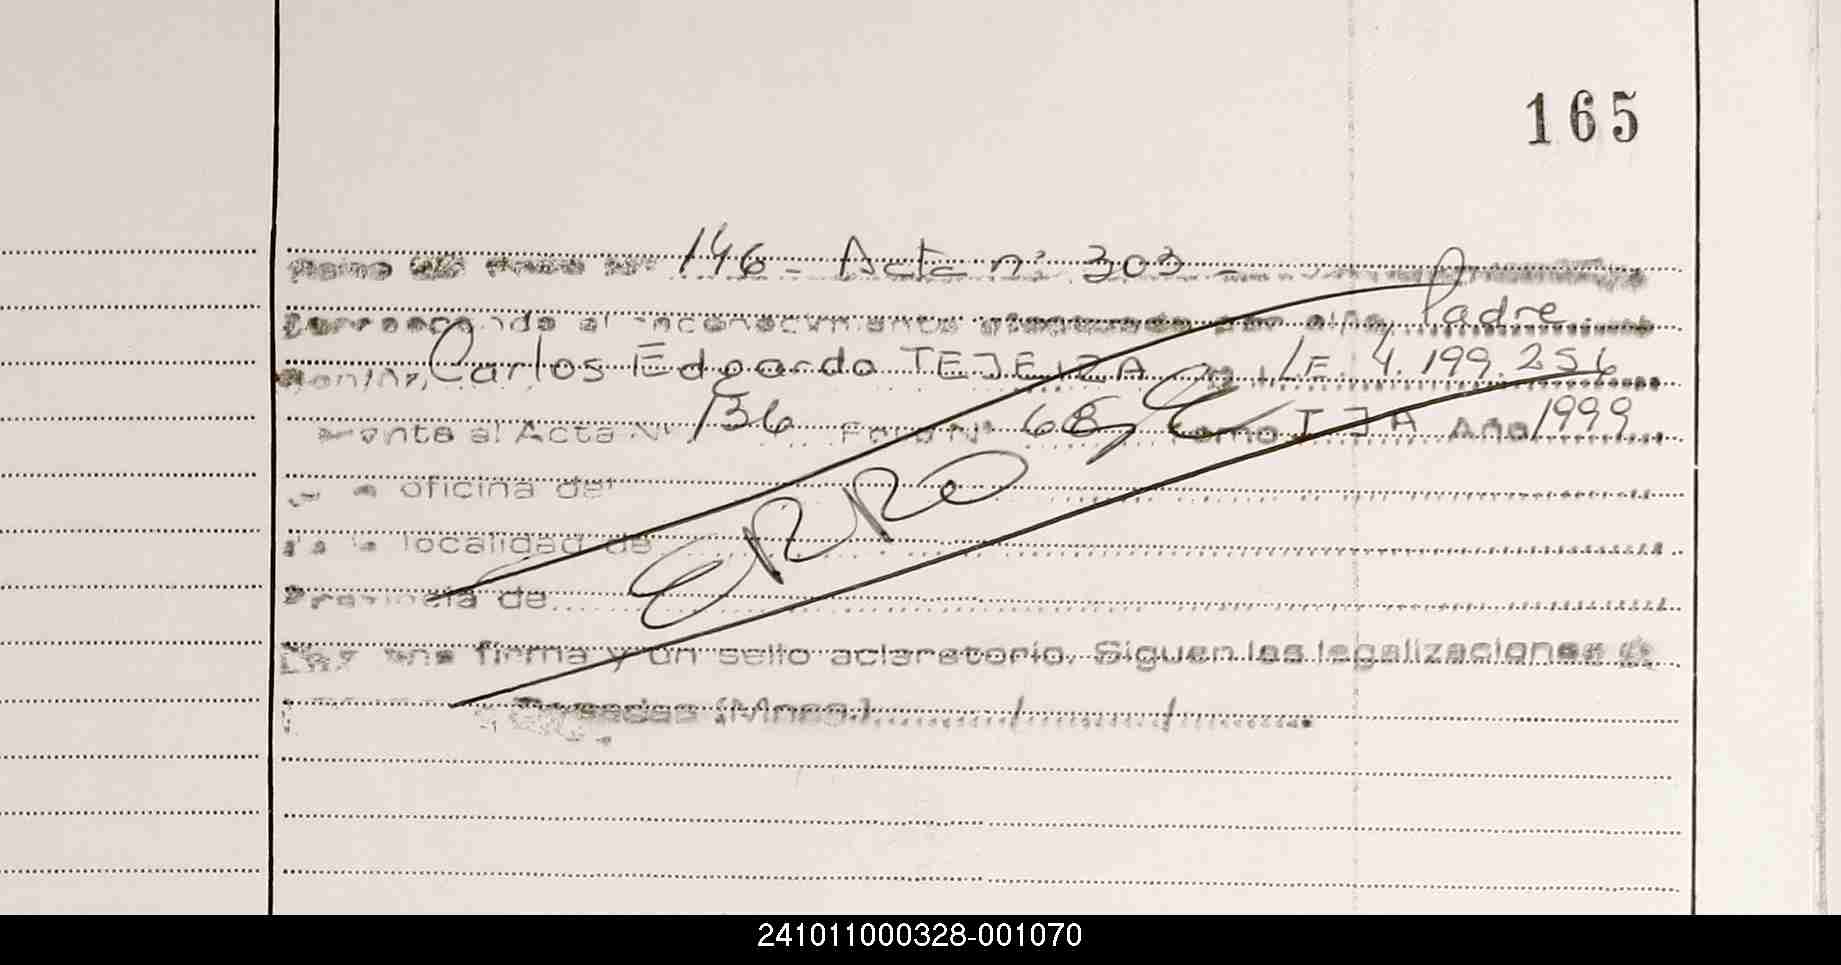 165
146 - Acta nº 303 -
al reconocimiento efectuado por el/la Padre
Carlos Edgardo TEJEIZA LE. 4.199.256
al Acta Nº 136 Folio Nº 68 Tomo IJA Año 1999
oficina del
localidad de
Provincia de
ERRO
una firma y un sello aclaratorio. Siguen las legalizaciones
Posadas (Mnes.) / /
241011000328-001070